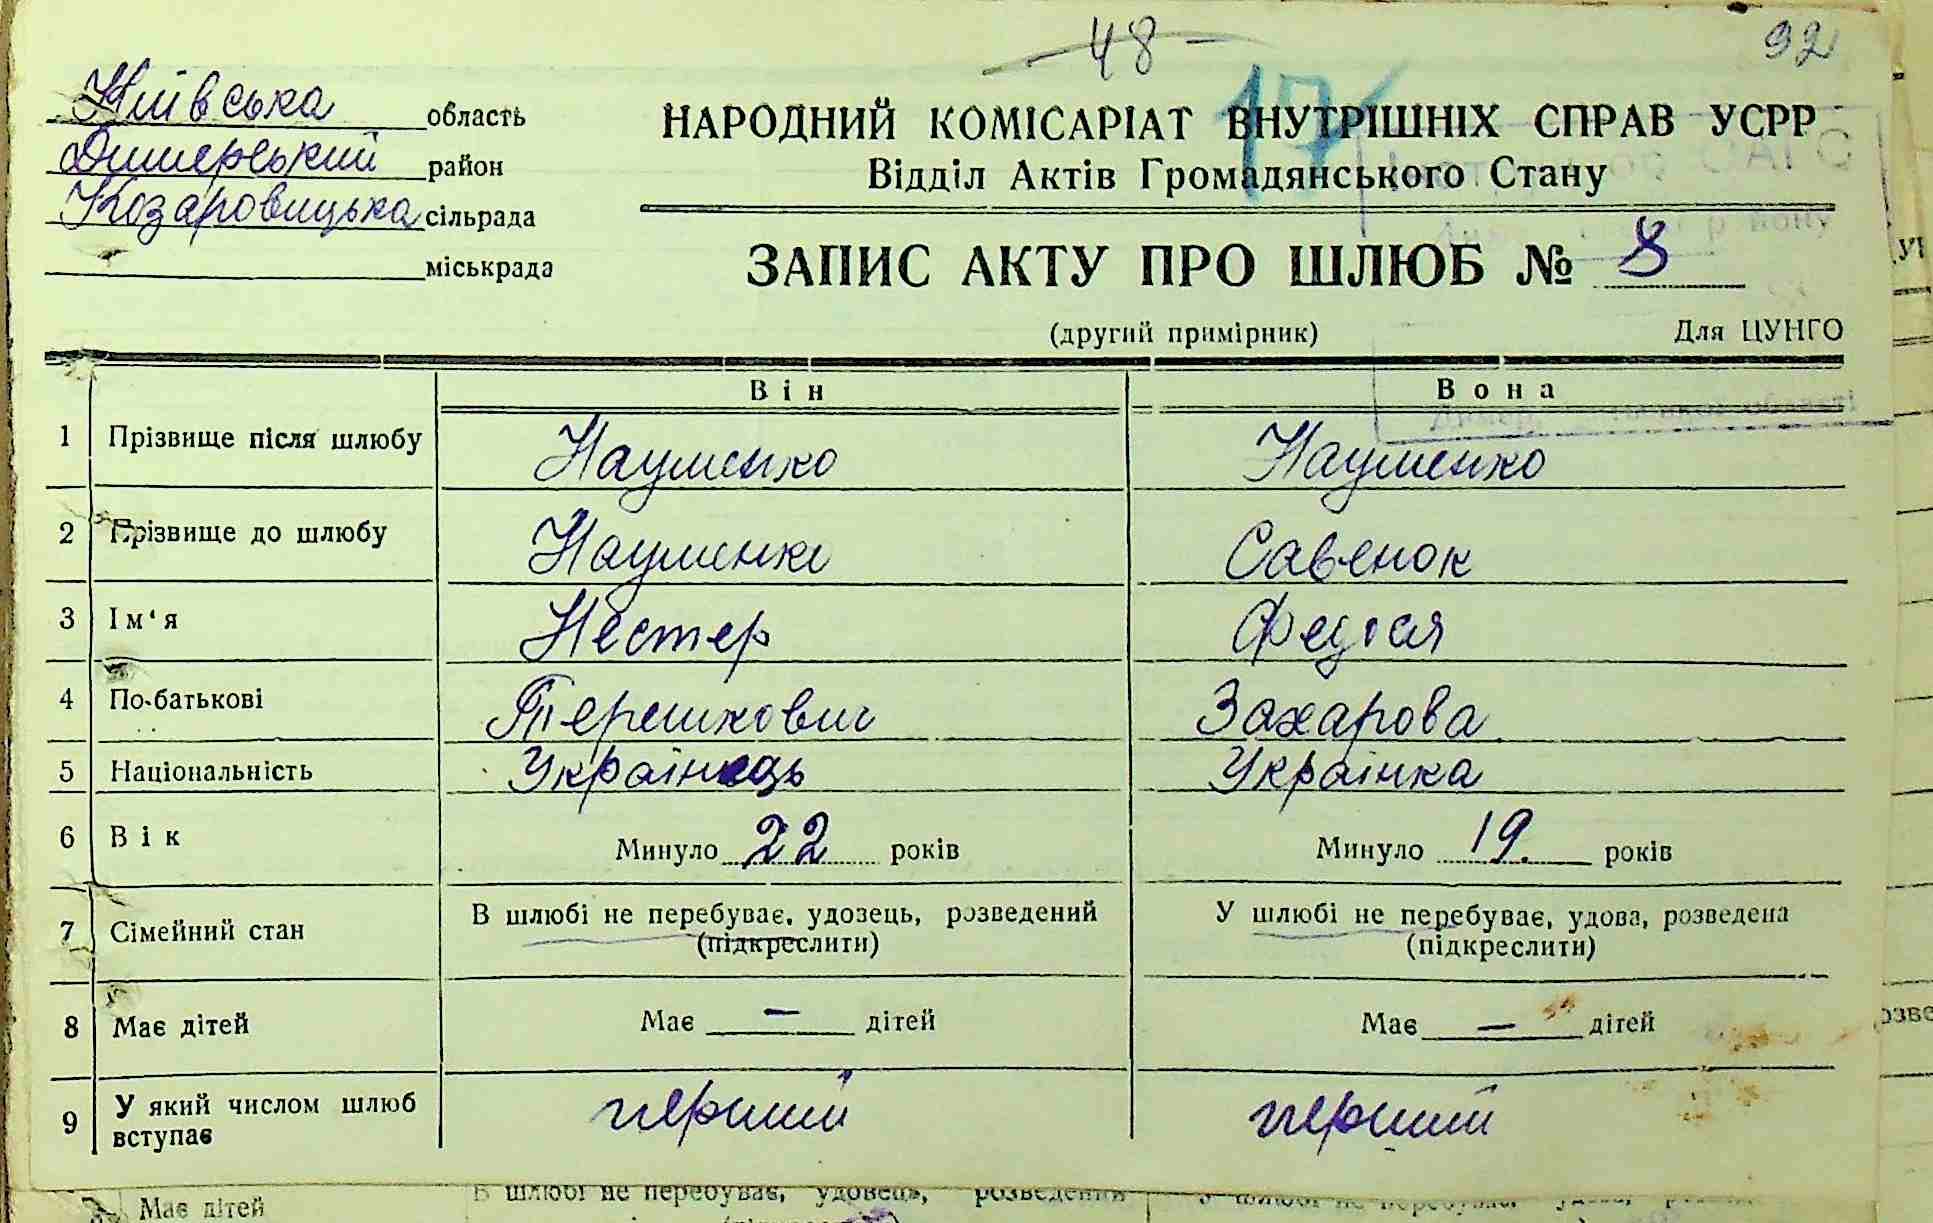 — 48 —
92
17
Київська область
Димерський район
Козаровицька сільрада
міськрада
НАРОДНИЙ КОМІСАРІАТ ВНУТРІШНІХ СПРАВ УСРР
Відділ Актів Громадянського Стану
ЗАПИС АКТУ ПРО ШЛЮБ № 8
(другий примірник) Для ЦУНГО
Він Вона
1 Прізвище після шлюбу Науменко Науменко
2 Прізвище до шлюбу Науменко Савенок
3 Ім'я Нестер Федося
4 По-батькові Терешкович Захарова
5 Національність Українець Українка
6 Вік Минуло 22 років Минуло 19 років
7 Сімейний стан В шлюбі не перебуває, удовець, розведений У шлюбі не перебуває, удова, розведена
(підкреслити) (підкреслити)
8 Має дітей Має — дітей Має — дітей
9 У який числом шлюб
вступає перший перший
Має дітей В шлюбі не перебуває, удовець, розведений